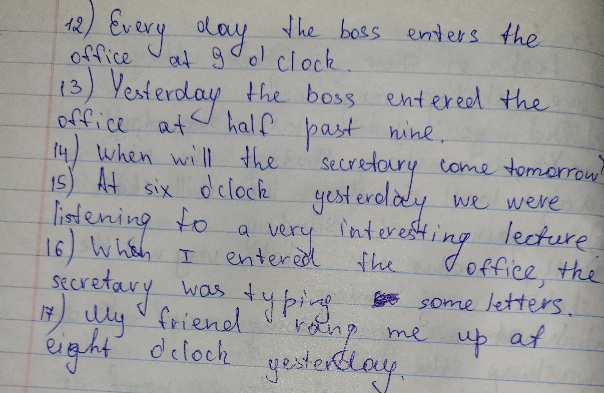 12) Every day the boss enters the
office at 9 o'clock.
13) Yesterday the boss entered the
office at half past nine.
14) When will the secretary come tomorrow?
15) At six o'clock yesterday we were
listening to a very interesting lecture
16) When I entered the office, the
secretary was typing some letters.
17) My friend rang me up at
eight o'clock yesterday.